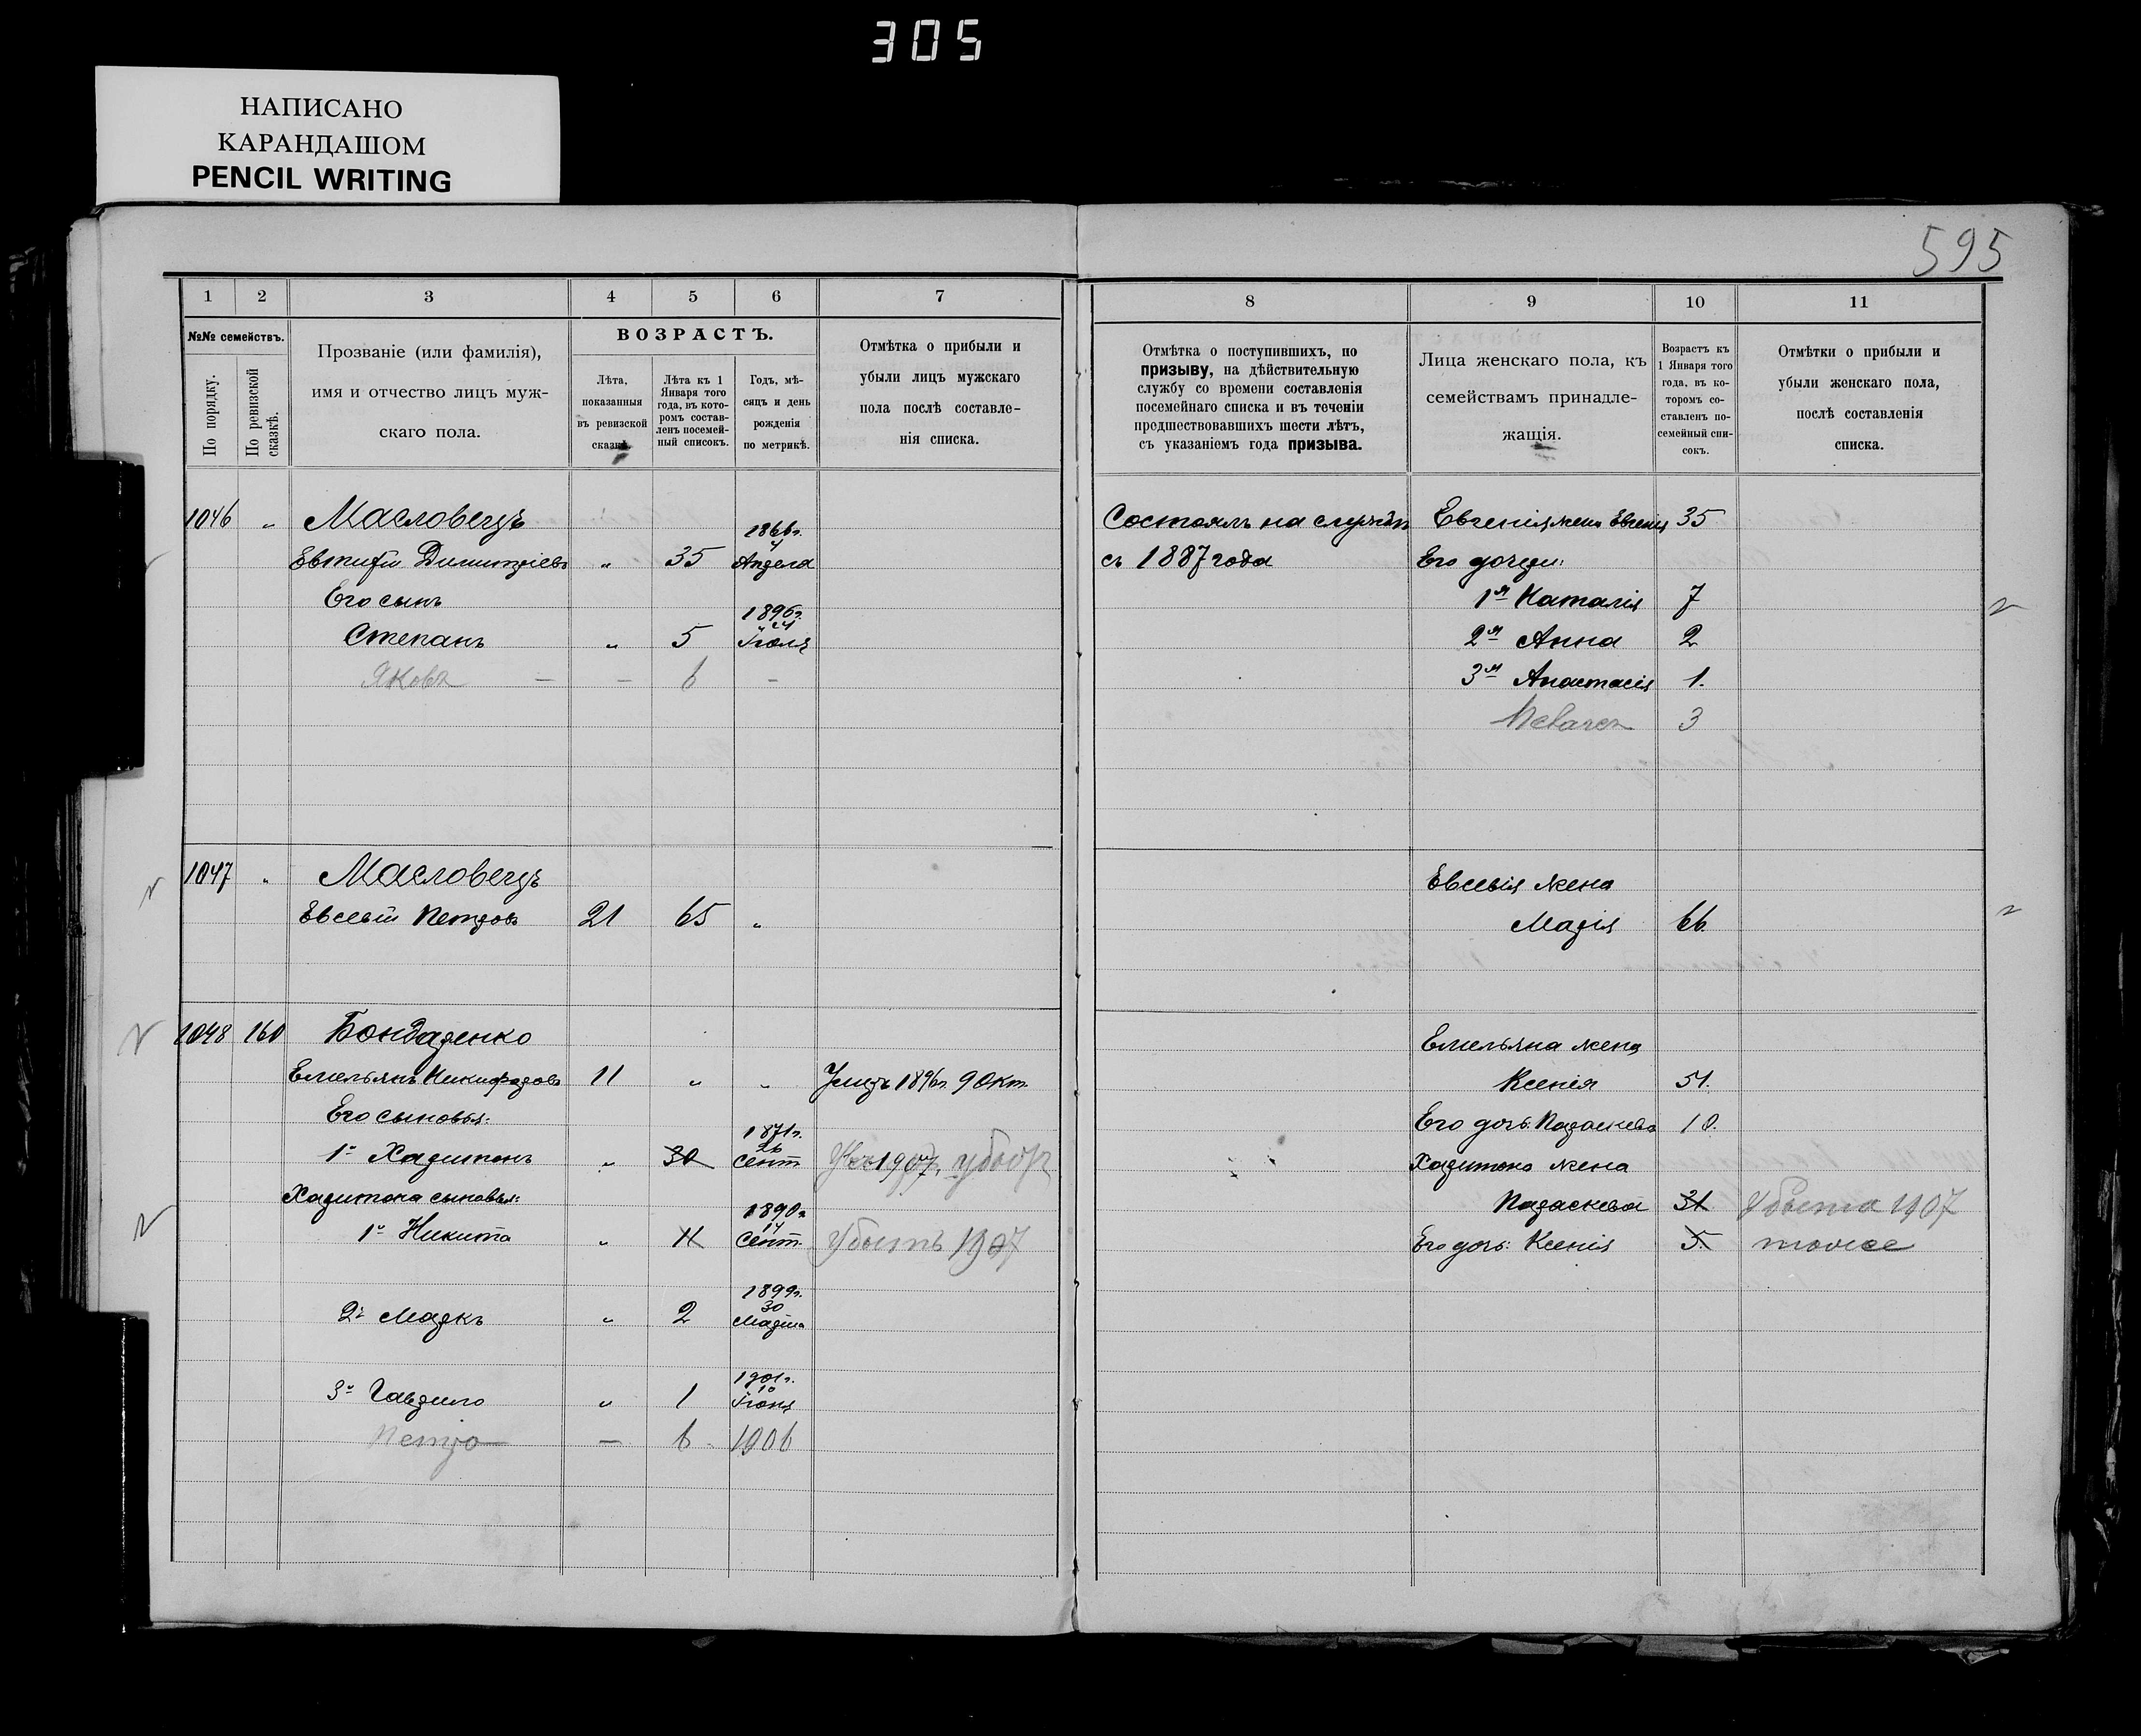 305
НАПИСАНО
КАРАНДАШОМ
PENCIL WRITING
595
1 2 3 4 5 6 7
№№ семействъ.
По порядку.
По ревизской сказкѣ.
Прозваніе (или фамилія),
имя и отчество лицъ муж-
скаго пола.
ВОЗРАСТЪ.
Лѣта,
показанныя
въ ревизской
сказкѣ.
Лѣта къ 1
Января того
года, въ кото-
ромъ состав-
ленъ посемей-
ный списокъ.
Годъ, мѣ-
сяцъ и день
рожденія
по метрикѣ.
Отмѣтка о прибыли и
убыли лицъ мужскаго
пола послѣ составле-
нія списка.
8 9 10 11
Отмѣтка о поступившихъ, по
призыву, на дѣйствительную
службу со времени составленія
посемейнаго списка и въ теченіи
предшествовавшихъ шести лѣтъ,
съ указаніемъ года призыва.
Лица женскаго пола, къ
семействамъ принадле-
жащія.
Возрастъ къ
1 Января того
года, въ ко-
торомъ со-
ставленъ по-
семейный спи-
сокъ.
Отмѣтки о прибыли и
убыли женскаго пола,
послѣ составленія
списка.
1046 " Масловецъ
1866г.
4
Димитріевъ " 35 Апреля
Его сынъ
1896г.
24
Степанъ " 5 Іюля
Яковъ — — 6 —
Состоялъ на службѣ
съ 1887 года
жена Евгенія 35
Его дочери:
1я Наталія 7
2я Анна 2
3я Анастасія 1.
3
1047 " Масловецъ
Евсевій Петровъ 21 65 "
Евсевія жена
Марія 66.
1048 160 Бондаренко
Емельянъ Никифоровъ 11 " " Умеръ 1896г. 9 Окт.
Его сыновья:
1871г.
26
1й Харитонъ " 30 Сент 1907
Харитона сыновья:
1890г
14
1й Никита " 11 Сент. Убылъ 1907
1899г.
30
2й Маркъ " 2 Марта
1901г.
10
3й Гаврило " 1 Іюня
Петро — 6 1906
Емельяна жена
Ксенія 51.
Его дочь: Параскева 10.
Харитона жена
Параскева 31 Убыла 1907
Его дочь: Ксенія 5. тоже